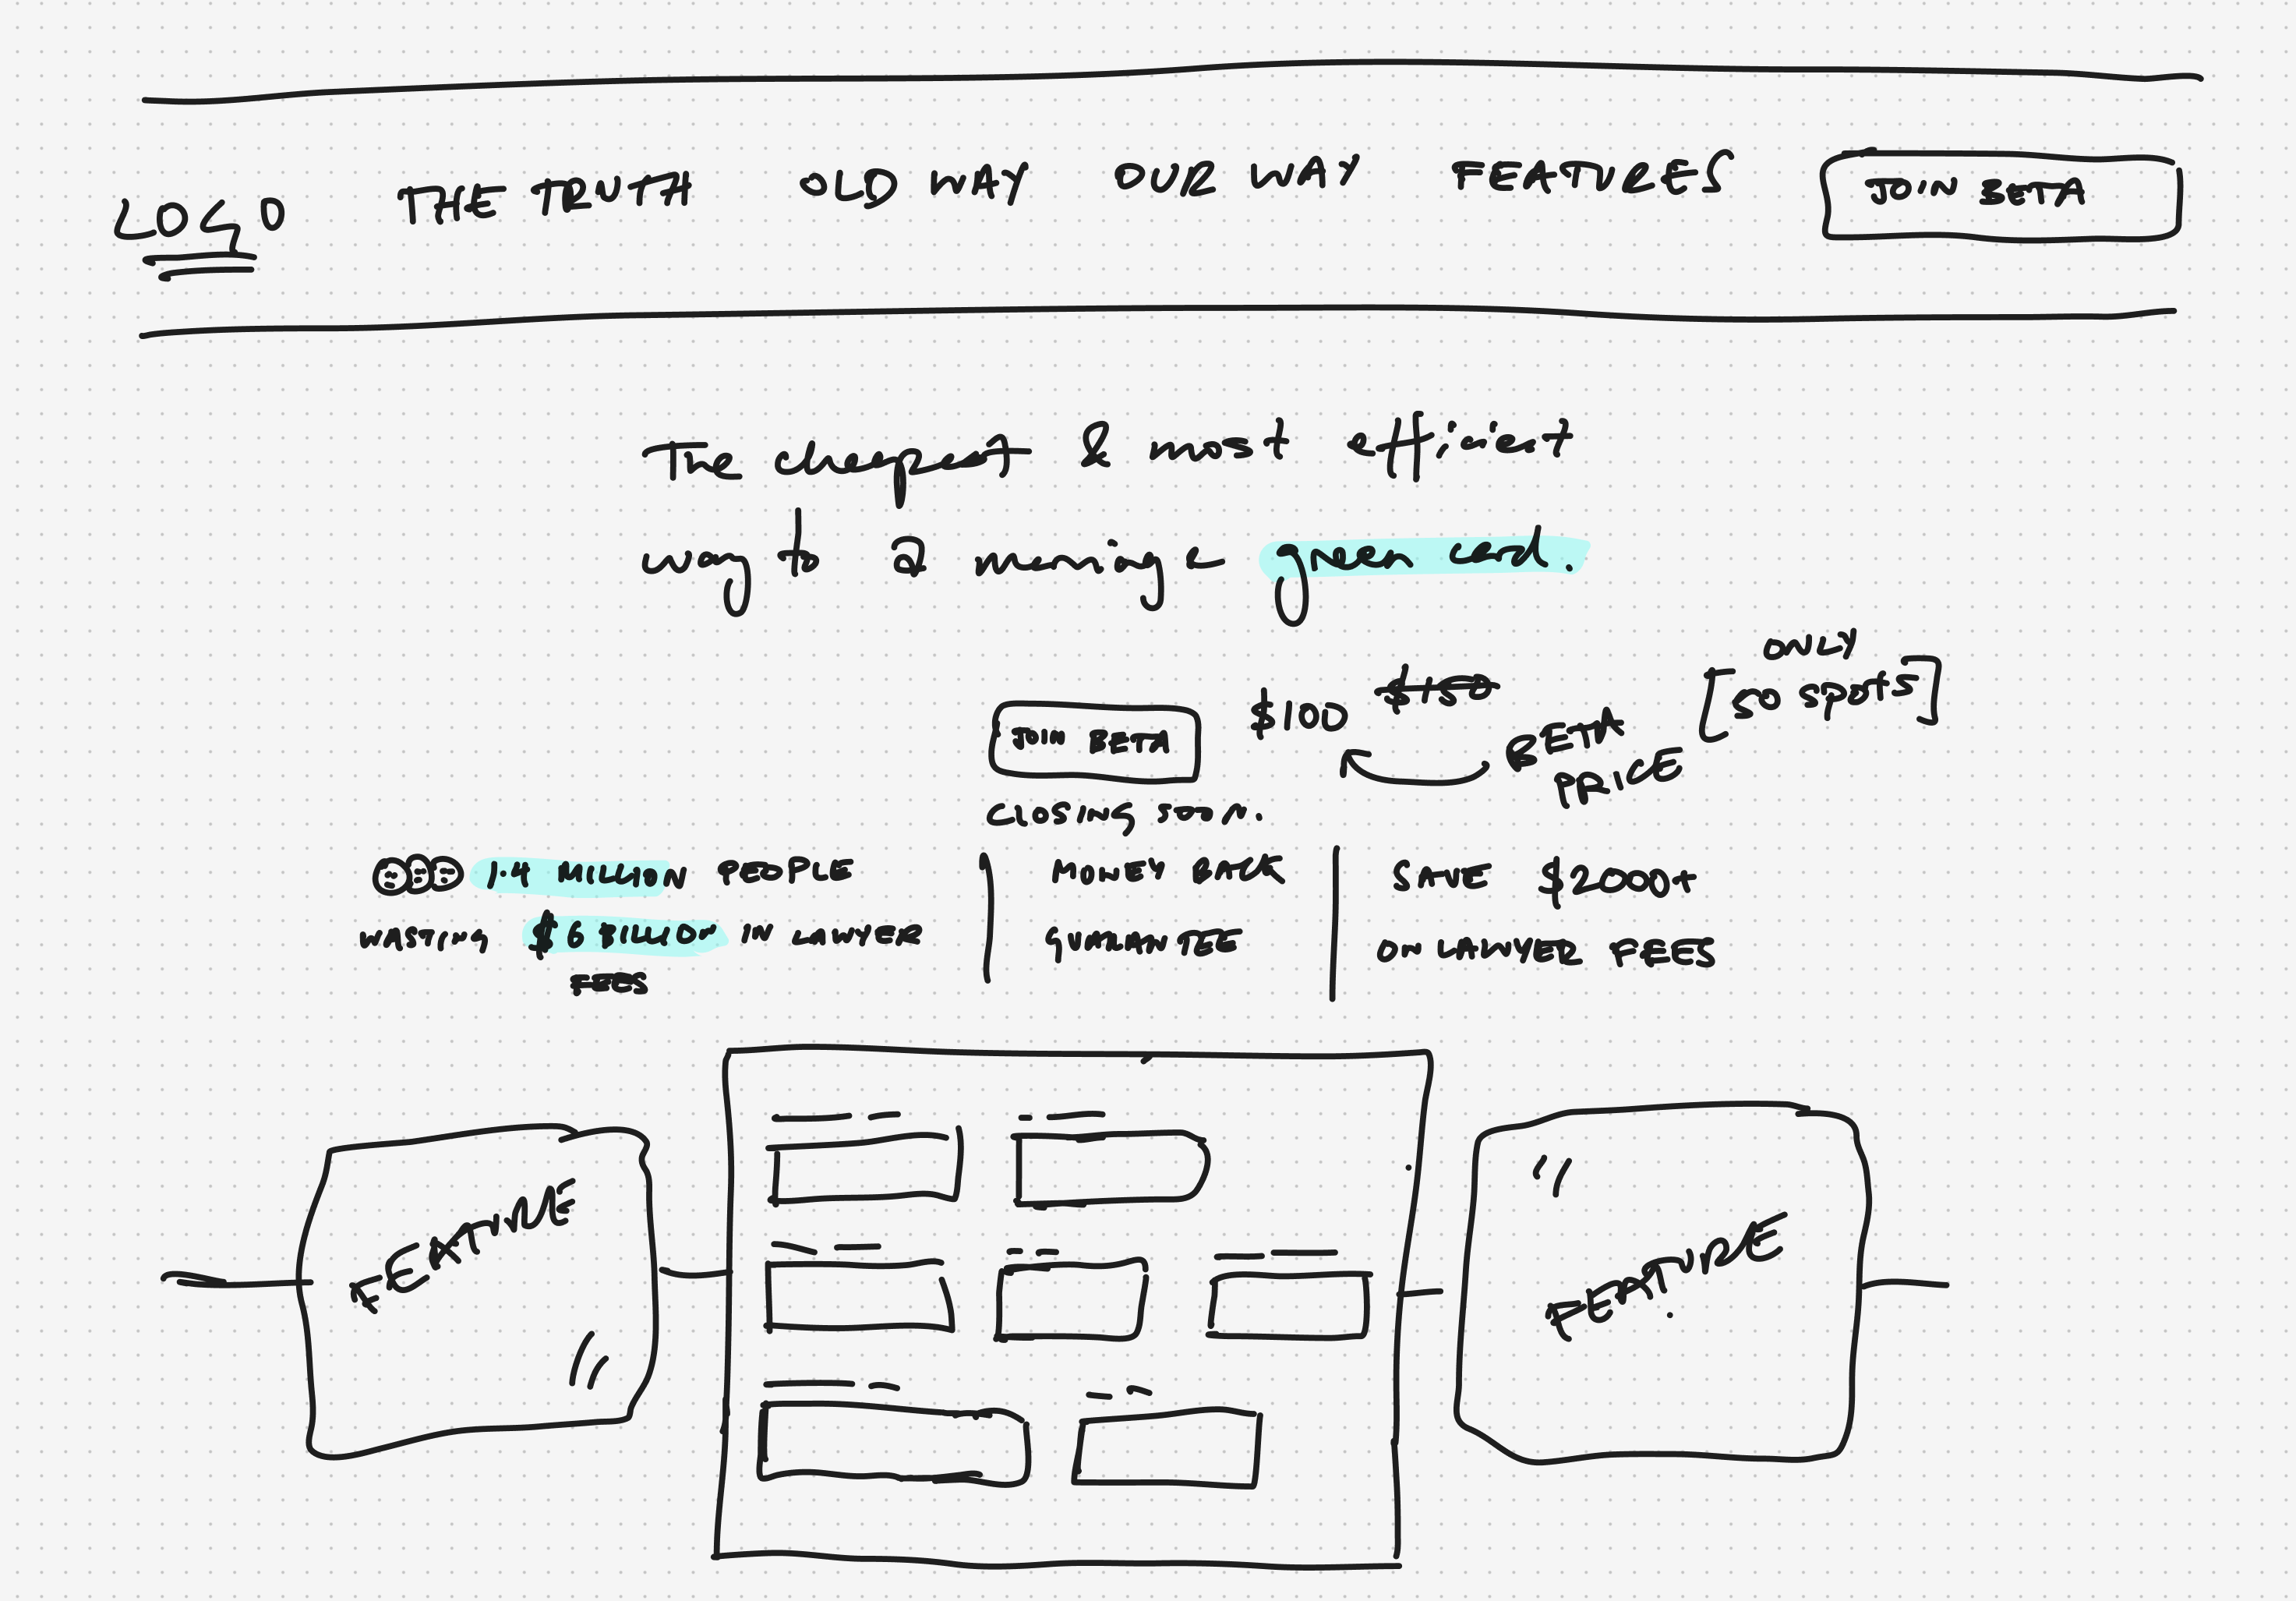 LOGO THE TRUTH OLD WAY OUR WAY FEATURES JOIN BETA
The cheapest & most efficient
way to a marriage green card.
ONLY
[50 spots]
JOIN BETA $100 $150
BETA
PRICE
CLOSING SOON.
1.4 MILLION PEOPLE
WASTING $6 BILLION IN LAWYER
FEES
MONEY BACK
GUARANTEE
SAVE $2000+
ON LAWYER FEES
FEATURE
FEATURE